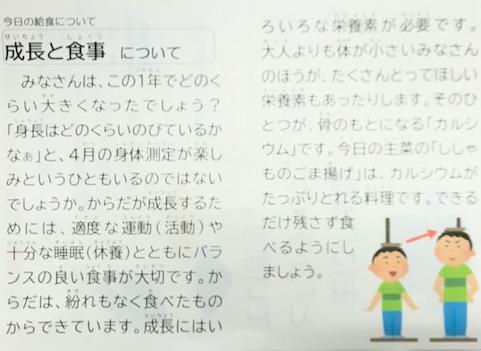 今日の給食について
成長と食事 について
みなさんは、この1年でどのく
らい大きくなったでしょう？
「身長はどのくらいのびているか
なぁ」と、4月の身体測定が楽し
みというひともいるのではない
でしょうか。からだが成長するた
めには、適度な運動（活動）や
十分な睡眠（休養）とともにバラ
ンスの良い食事が大切です。か
らだは、紛れもなく食べたもの
からできています。成長にはい
ろいろな栄養素が必要です。
大人よりも体が小さいみなさん
のほうが、たくさんとってほしい
栄養素もあったりします。そのひ
とつが、骨のもとになる「カルシ
ウム」です。今日の主菜の「ししゃ
ものごま揚げ」は、カルシウムが
たっぷりとれる料理です。できる
だけ残さず食
べるようにし
ましょう。